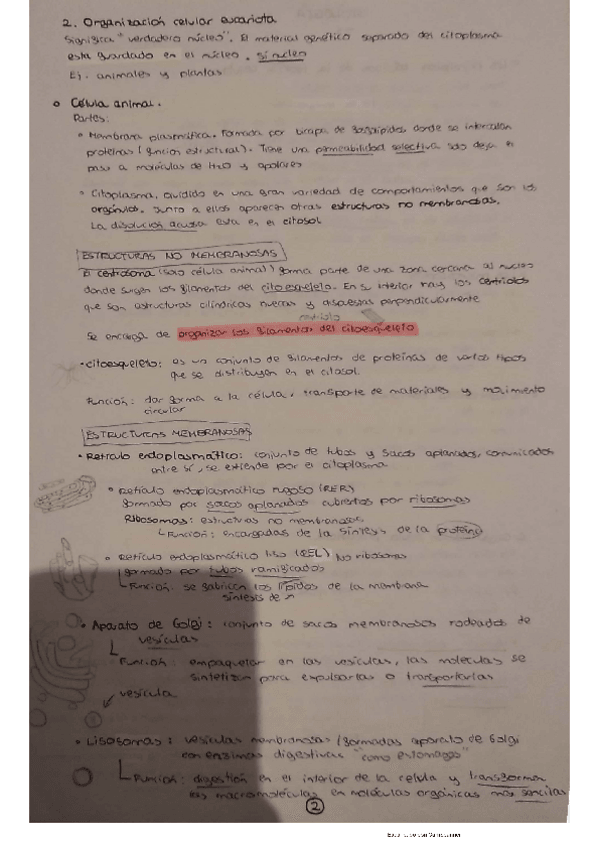 2. Organización celular eucariota
Significa "verdadero núcleo". El material genético separado del citoplasma
esta guardado en el núcleo, si nucleo
Ej. animales y plantas
Célula animal.
Partes:
Membrana plasmática. Formada por bicapa de fosfolípidos, donde se intercalan
proteínas (función estructural). Tiene una permeabilidad selectiva solo deja el
paso a moléculas de H2O y apolares
Citoplasma, dividido en una gran variedad de comportamientos que son los
orgánulos. Junto a ellos aparecen otras estructuras no membranosas.
La disolución acuosa esta en el citosol
ESTRUCTURAS NO MEMBRANOSAS
El centrosoma (solo célula animal) forma parte de una zona cercana al nucleo
donde surgen los filamentos del citoesqueleto. En su interior hay los centriolos
que son estructuras cilíndricas huecas y dispuestas perpendicularmente
centriolo
Se encarga de organizar los filamentos del citoesqueleto
citoesqueleto: es un conjunto de filamentos de proteínas de varios tipos
que se distribuyen en el citosol.
Función: dar forma a la célula, transporte de materiales y movimiento
circular
ESTRUCTURAS MEMBRANOSAS
Retículo endoplasmático: conjunto de tubos y sacos aplanados, comunicados
entre sí, se extiende por el citoplasma
Retículo endoplasmático rugoso (RER)
formado por sacos aplanados cubiertos por ribosomas
Ribosomas: estructuras no membranosas
Función: encargadas de la síntesis de la proteína
Retículo endoplasmático liso (REL) No ribosomas
formado por tubos ramificados
Función: se fabrican los lípidos de la membrana
síntesis de
Aparato de Golgi: conjunto de sacos membranosos rodeados de
vesículas
Función: empaquetar en las vesículas, las moleculas se
sintetizan para expulsarlas o transportarlas
vesícula
Lisosomas: vesículas membranosas (formadas aparato de Golgi
con enzimas digestivas "como estomagos"
Función: digestión en el interior de la celula y transforman
las macromoléculas en moléculas orgánicas más sencillas
2